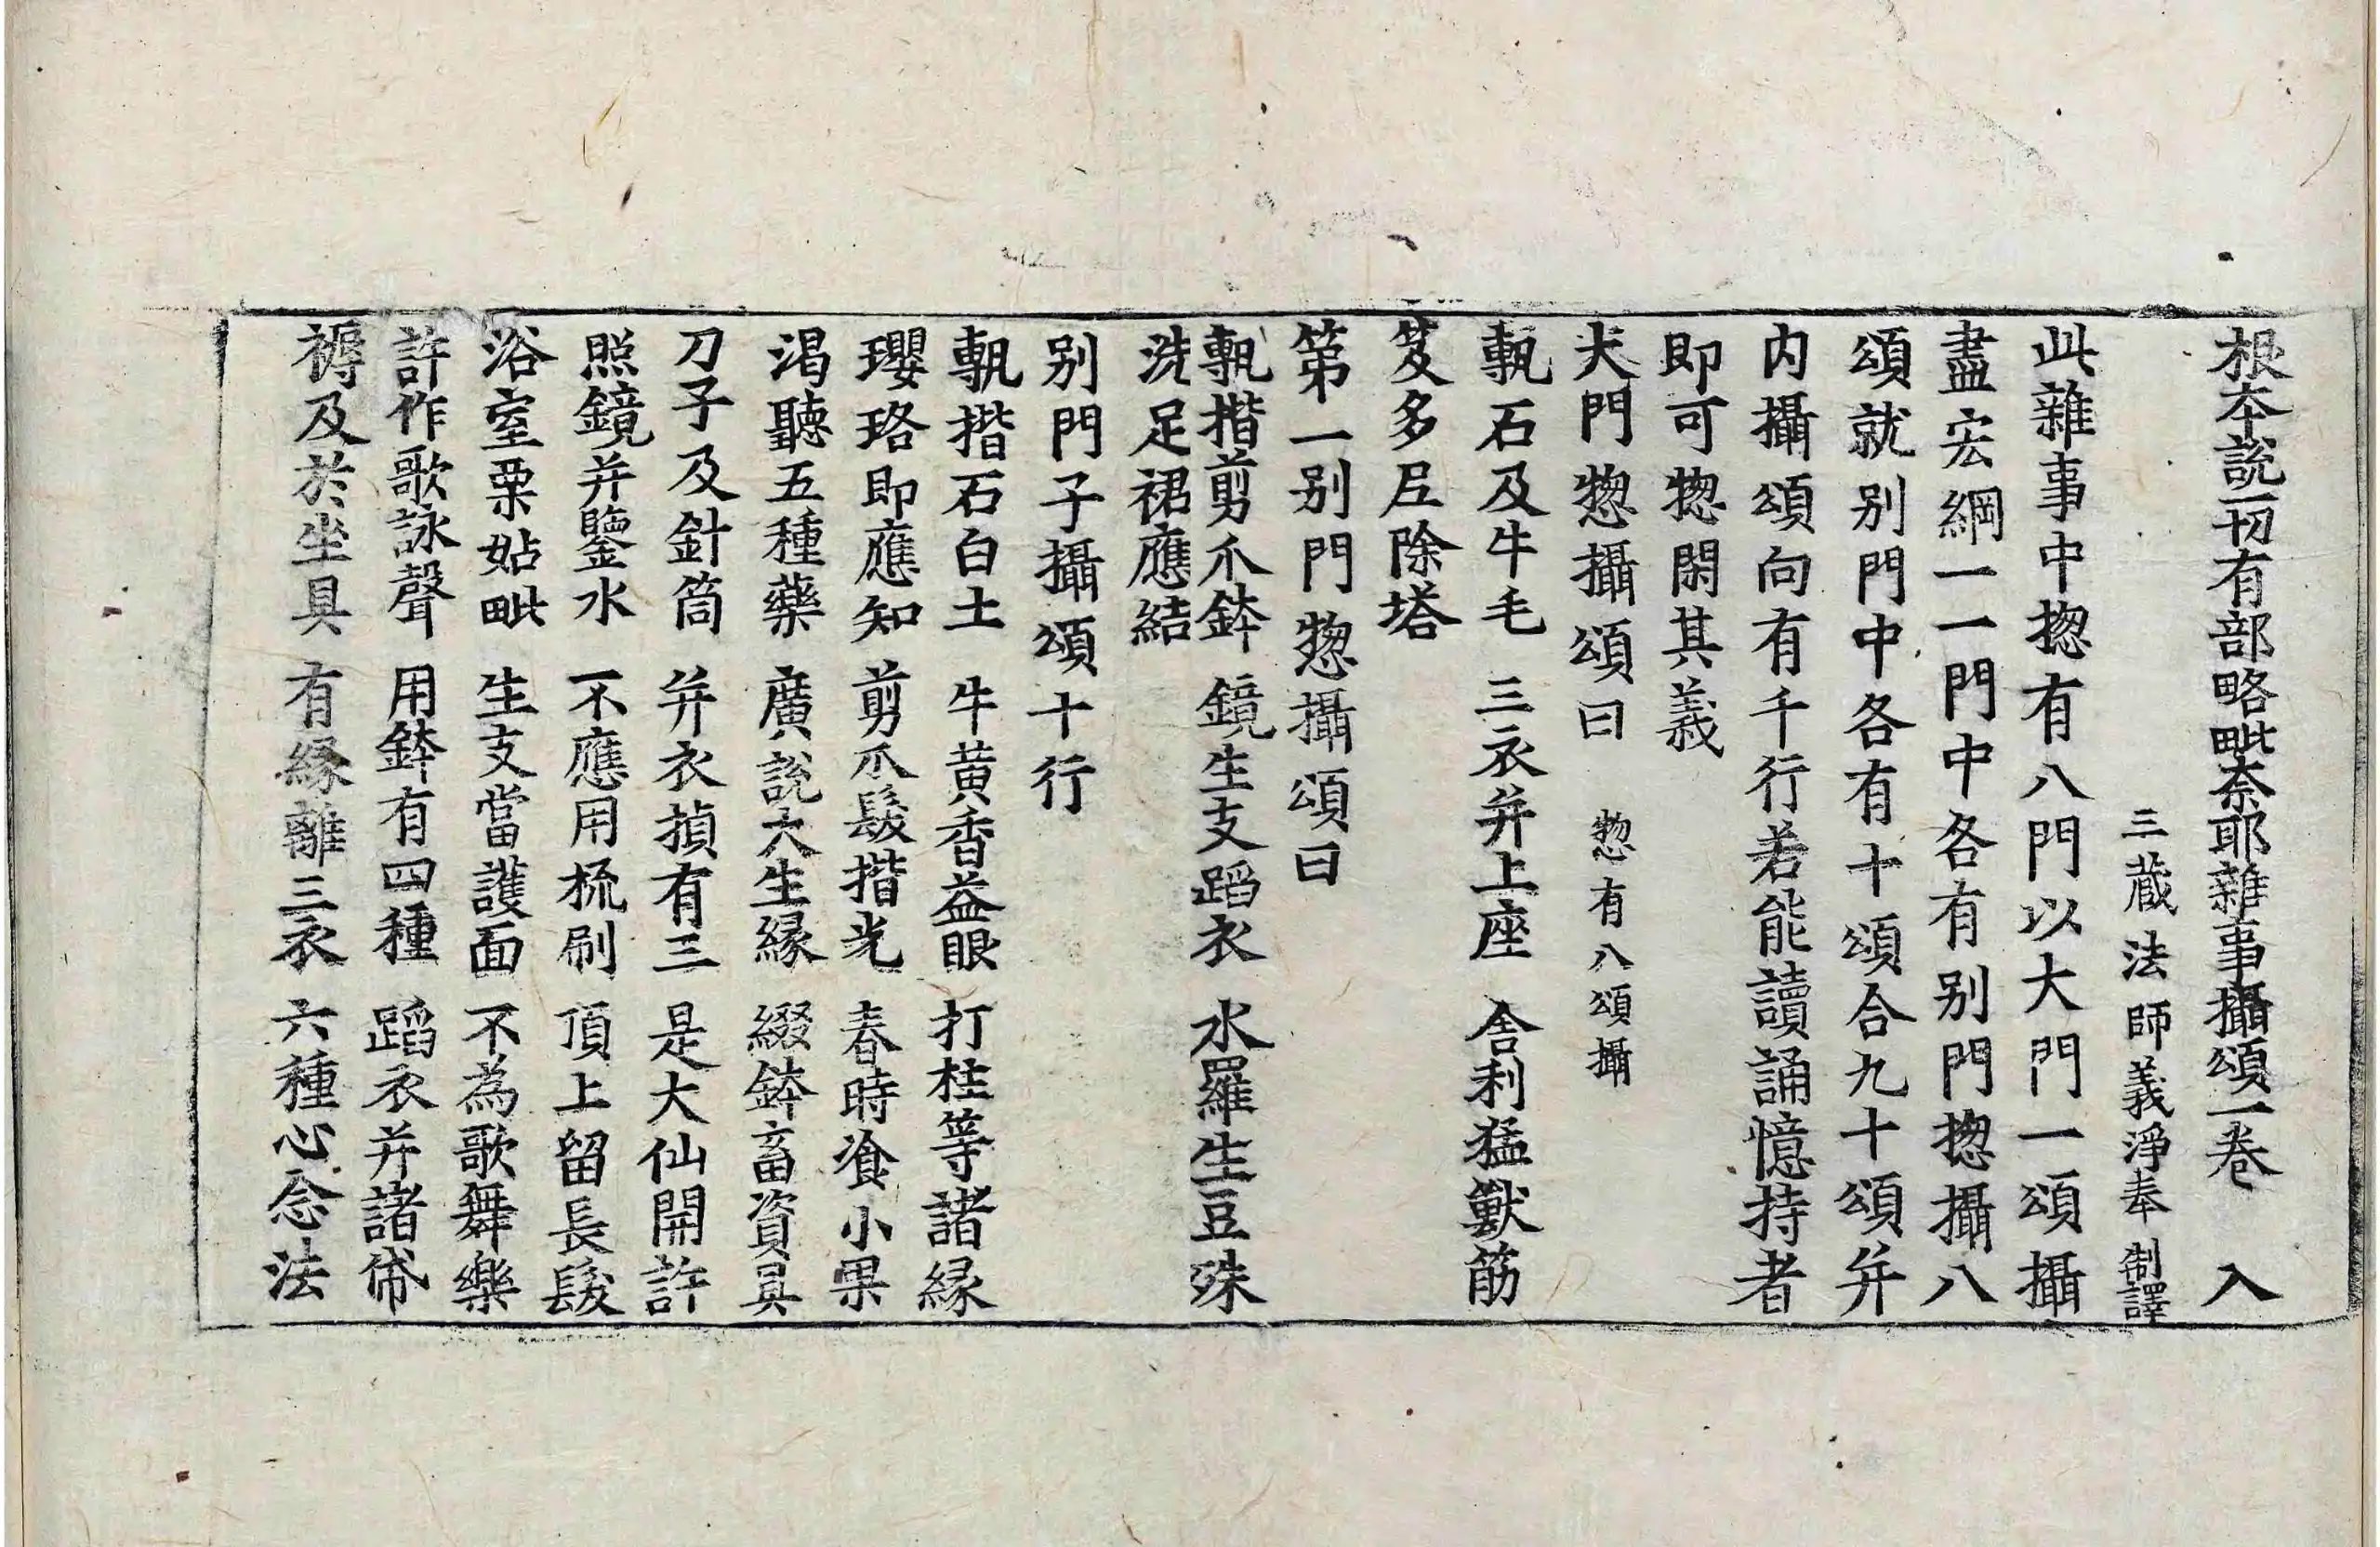 根本說一切有部略毗奈耶雜事攝頌一卷 入
三蔵法師義淨奉 制譯
此雜事中揔有八門以大門一頌攝
盡宏綱一一門中各有別門揔攝八
頌就別門中各有十頌合九十頌并
內攝頌向有千行若能讀誦憶持者
即可惣閑其義
大門惣攝頌曰 惣有八頌攝
甎石及牛毛 三衣并上座 舍利猛獸筋
笈多尼除塔
第一別門惣攝頌曰
甎揩剪爪鉢 鏡生支蹈衣 水羅生豆珠
洗足裙應結
別門子攝頌十行
甎揩石白土 牛黃香益眼 打柱等諸緣
瓔珞即應知 剪爪髮揩光 春時湌小果
渴聽五種藥 廣說大生緣 綴鉢畜資具
刀子及針筒 并衣揁有三 是大仙開許
照鏡并鑒水 不應用梳刷 頂上留長髮
浴室栗姑毗 生支當護面 不為歌舞樂
許作歌詠聲 用鉢有四種 蹈衣并諸㡀
褥及於坐具 有緣離三衣 六種心念法